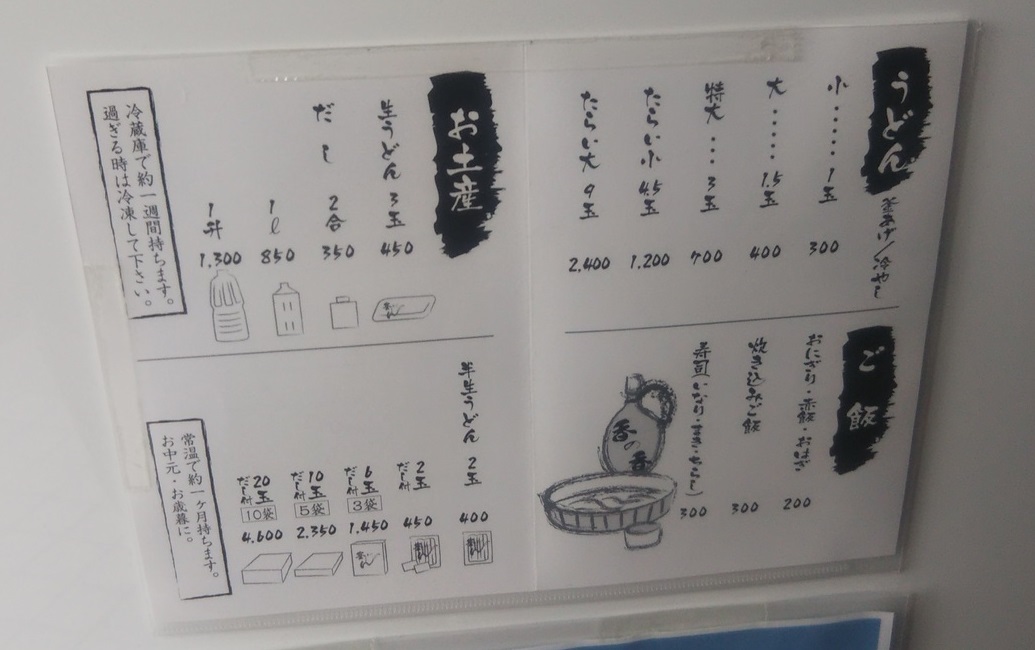 うどん
釜あげ/冷やし
小・・・・・・1玉 300
大・・・・・・1.5玉 400
特大・・・3玉 700
たらい小 4.5玉 1.200
たらい大 9玉 2.400
ご飯
おにぎり・赤飯・おはぎ 200
炊き込みご飯 300
寿司(いなり・まき・ちらし) 300
香の香
お土産
生うどん 3玉 450
だし 2合 350
1ℓ 850
1升 1.300
冷蔵庫で約一週間持ちます。
過ぎる時は冷凍して下さい。
半生うどん 2玉 400
2玉 だし付 450
6玉 だし付 3袋 1.450
10玉 だし付 5袋 2.350
20玉 だし付 10袋 4.600
常温で約一ヶ月持ちます。
お中元・お歳暮に。